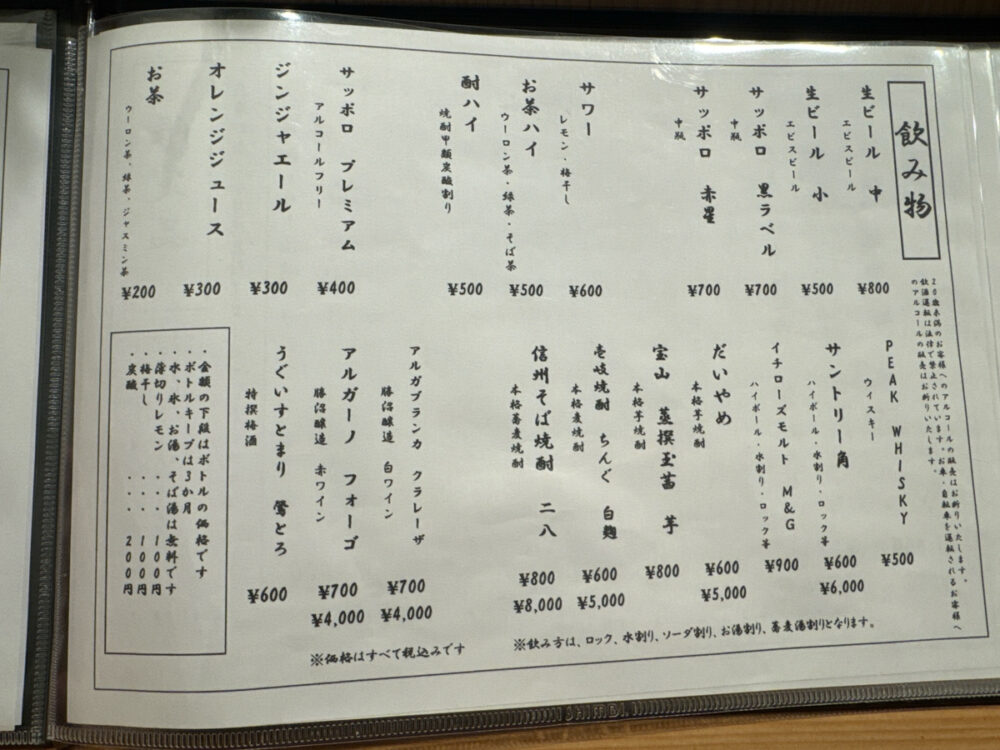 飲み物
20歳未満のお客様へのアルコールの販売はお断りいたします。
飲酒運転は法律で禁止されています。お車・自転車を運転されるお客様へ
のアルコールの販売はお断りいたします。
生ビール 中
エビスビール
¥800
生ビール 小
エビスビール
¥500
サッポロ 黒ラベル
中瓶
¥700
サッポロ 赤星
中瓶
¥700
サワー
レモン・梅干し
¥600
お茶ハイ
ウーロン茶・緑茶・そば茶
¥500
酎ハイ
焼酎甲類炭酸割り
¥500
サッポロ プレミアム
アルコールフリー
¥400
ジンジャエール
¥300
オレンジジュース
¥300
お茶
ウーロン茶、緑茶、ジャスミン茶
¥200
PEAK WHISKY
ウィスキー
¥500
サントリー角
ハイボール・水割り・ロック等
¥600
¥6,000
イチローズモルト M&G
ハイボール・水割り・ロック等
¥900
だいやめ
本格芋焼酎
¥600
¥5,000
宝山 蒸撰玉茜 芋
本格芋焼酎
¥800
壱岐焼酎 ちんぐ 白麹
本格麦焼酎
¥600
¥5,000
信州そば焼酎 二八
本格蕎麦焼酎
¥800
¥8,000
アルガブランカ クラレーザ
勝沼醸造 白ワイン
¥700
¥4,000
アルガーノ フォーゴ
勝沼醸造 赤ワイン
¥700
¥4,000
うぐいすとまり 鶯とろ
特撰梅酒
¥600
・金額の下段はボトルの価格です
・ボトルキープは3か月
・水、氷、お湯、そば湯は無料です
・薄切りレモン ・・・ 100円
・梅干し ・・・ 100円
・炭酸 ・・・ 200円
※飲み方は、ロック、水割り、ソーダ割り、お湯割り、蕎麦湯割りとなります。
※価格はすべて税込みです